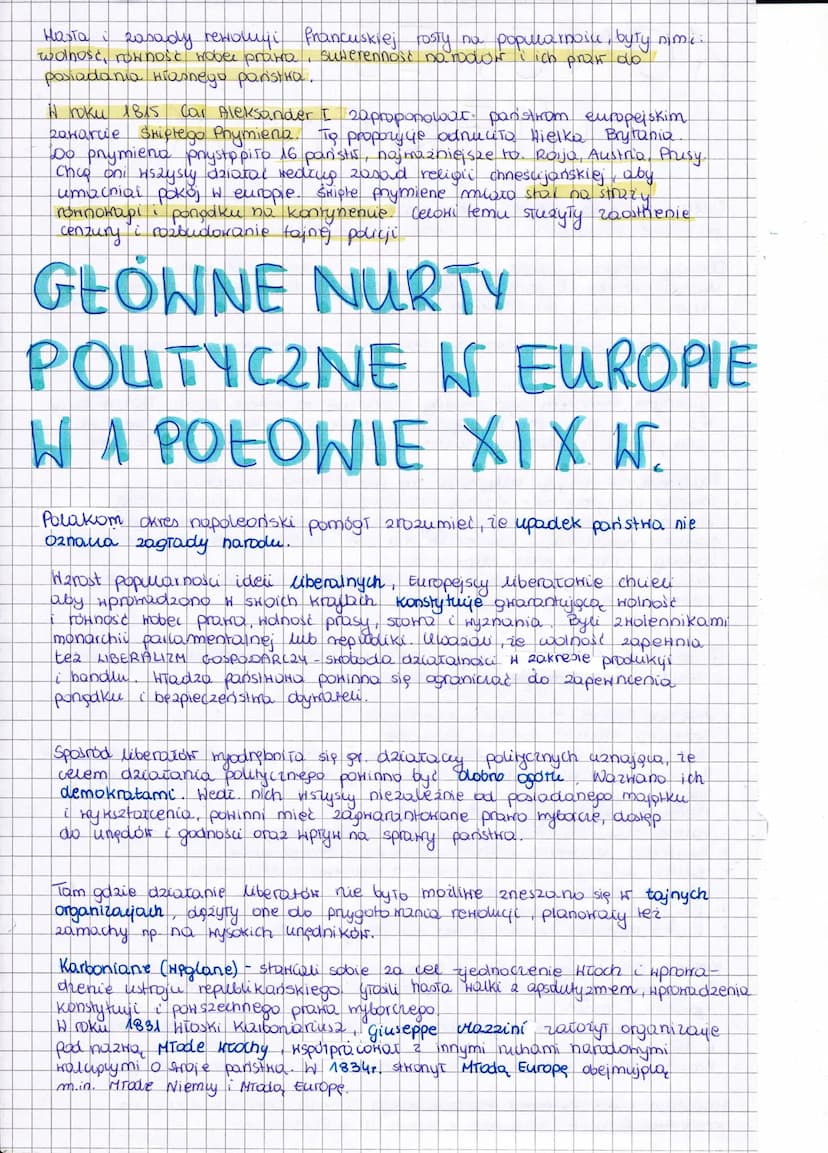 Hasła i zasady rewolucji francuskiej rosły na popularności, były nimi:
wolność, równość wobec prawa, suwerenność narodów i ich praw do
posiadania własnego państwa.
W roku 1815 Car Aleksander I zaproponował państwom europejskim
zawarcie Świętego Przymierza. Tę propozycje odrzuciła Wielka Brytania.
Do przymierza przystąpiło 16 państw, najważniejsze to. Rosja, Austria, Prusy.
Chcą oni wszyscy działać według zasad religii chrześcijańskiej, aby
umacniać pokój w europie. Święte przymierze miało stać na straży
równowagi i porządku na kontynencie. Celowi temu służyły zaostrzenie
cenzury i rozbudowanie tajnej policji
GŁÓWNE NURTY
POLITYCZNE W EUROPIE
W 1 POŁOWIE XIX W.
Polakom okres napoleoński pomógł zrozumieć, że upadek państwa nie
oznacza zagłady narodu.
Wzrost popularności ideii liberalnych, Europejscy liberałowie chcieli
aby wprowadzono w swoich krajach konstytucje gwarantującą wolność
i równość wobec prawa, wolność prasy, słowa i wyznania. Byli zwolennikami
monarchii parlamentalnej lub republiki. Uważali, że wolność zapewnia
też LIBERALIZM GOSPODARCZY - swoboda działalności w zakresie produkcji
i handlu. Władza państwowa powinna się ograniczać do zapewnienia
porządku i bezpieczeństwa obywateli.
Spośród liberałów wyodrębniła się gr. działaczy politycznych uznająca, że
celem działania politycznego powinno być dobro ogółu. Nazwano ich
demokratami. Wedł. nich wszyscy niezależnie od posiadanego majątku
i wykształcenia, powinni mieć zagwarantowane prawo wyborcze, dostęp
do urzędów i godności oraz wpływ na sprawy państwa.
Tam gdzie działanie liberałów nie było możliwe zrzeszano się w tajnych
organizacjach, dążyły one do przygotowania rewolucji, planowały też
zamachy np. na wysokich urzędników.
Karboniarze (węglarze) - stawiali sobie za cel zjednoczenie Włoch i wprowa-
dzenie ustroju republikańskiego. Głosili hasła walki z apsolutyzmem, wprowadzenia
konstytucji i powszechnego prawa wyborczego.
W roku 1831 włoski karboniariusz, Giuseppe Mazzini, założył organizacje
pod nazwą Młode Włochy, współpracował z innymi ruchami narodowymi
walczącymi o swoje państwa. W 1834r. stworzył Młodą Europę obejmującą
m.in. Młode Niemcy i Młodą Europę.